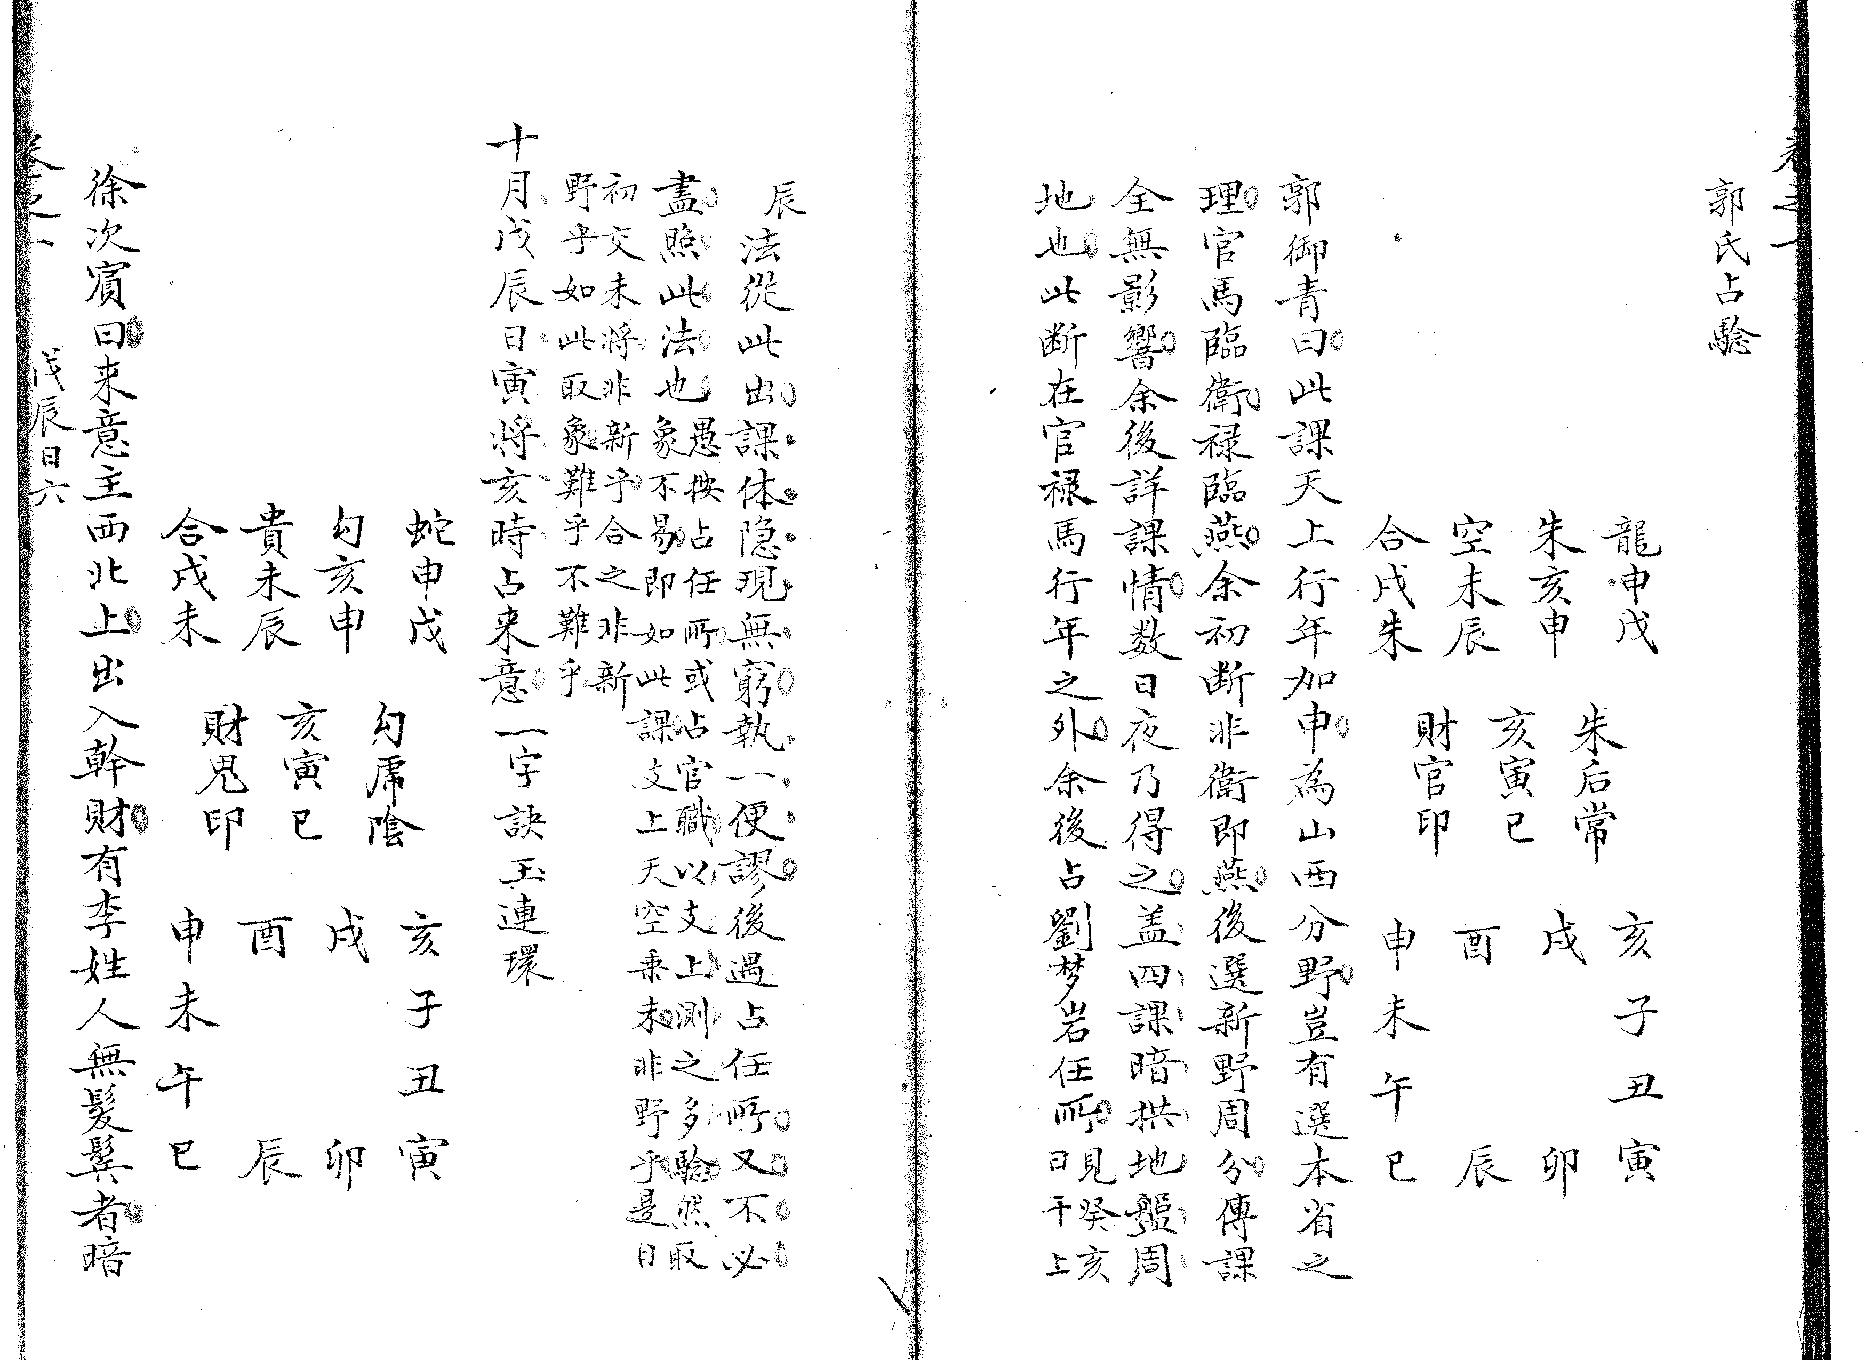 卷之一
郭氏占驗
龍申戊　朱后常　亥子丑寅
朱亥申　亥寅巳　戌　卯
空未辰　財官印　酉　辰
合戌朱　申未午巳
郭御青曰此課天上行年加申為山西分野豈有選本省之
理官馬臨衛祿臨燕余初斷非衛即燕後選新野周分傳課
全無影響余後詳課情数日夜乃得之盖四課暗拱地盤周
地也此断在官禄馬行年之外余後占劉梦岩任所見癸亥日干上
辰
法從此出課体隐現無窮執一便謬後遇占任所又不必
盡照此法也愚按占任所或占官職以支上測之多驗然取象不易即如此課支上天空乗未非野乎是日
初交未將非新乎合之非新
野乎如此取象難乎不難乎
十月戊辰日寅将亥時占来意一字訣玉連環
蛇申戊　勾虎陰　亥子丑寅
勾亥申　亥寅巳　戌　卯
貴未辰　財鬼印　酉　辰
合戌未　申未午巳
徐次賓曰来意主西北上出入幹財有李姓人無髮鬓者暗
卷之一　戊辰日六